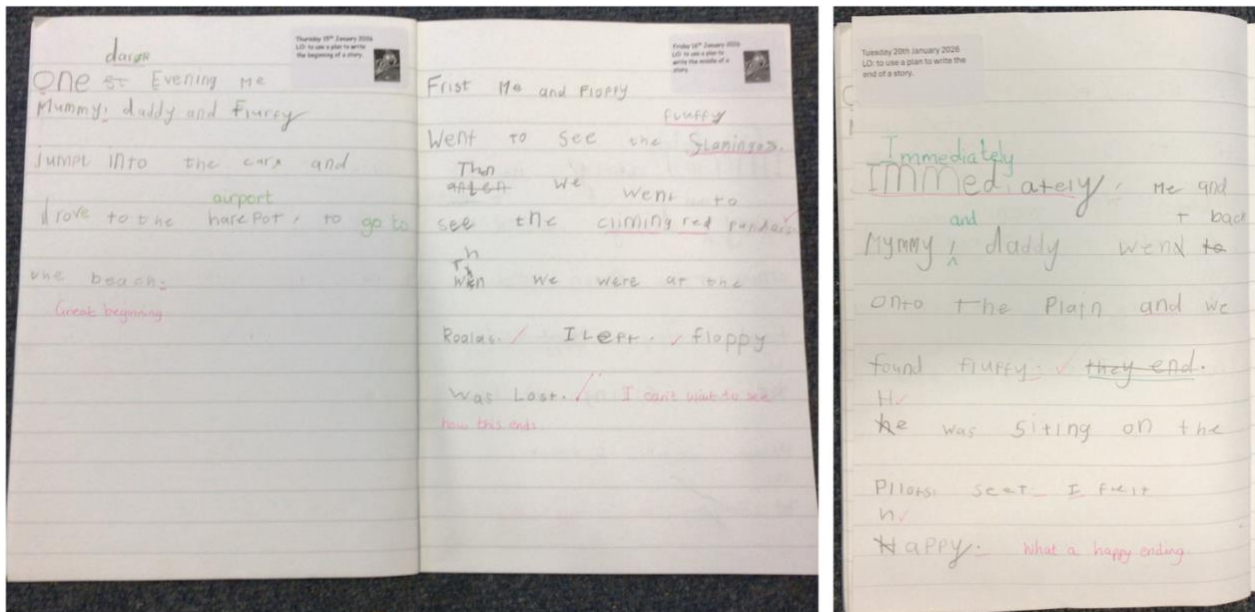 Thursday 15th January 2026
LO: to use a plan to write
the beginning of a story.
One Evening Me
Mummy, daddy and Flurfy
jumpt into the cars and
airport
drove to the harepot, to go to
the beach.
Great beginning
Friday 16th January 2026
LO: to use a plan to
write the middle of a
story.
Frist Me and Floppy
fluffy
Went to see the flamingos.
Then
we went to
see the climing red pandas.
Th
wen we were at the
Koalas. I Left. floppy
was Lost. I can't wait to see
how this ends
Tuesday 20th January 2026
LO: to use a plan to write the
end of a story.
Immediately
Immediately, Me and
and t back
Mymmy daddy wend to
onto the Plain and we
found fluffy. they end.
H
he was siting on the
Pilots seat I
h
Happy. What a happy ending.